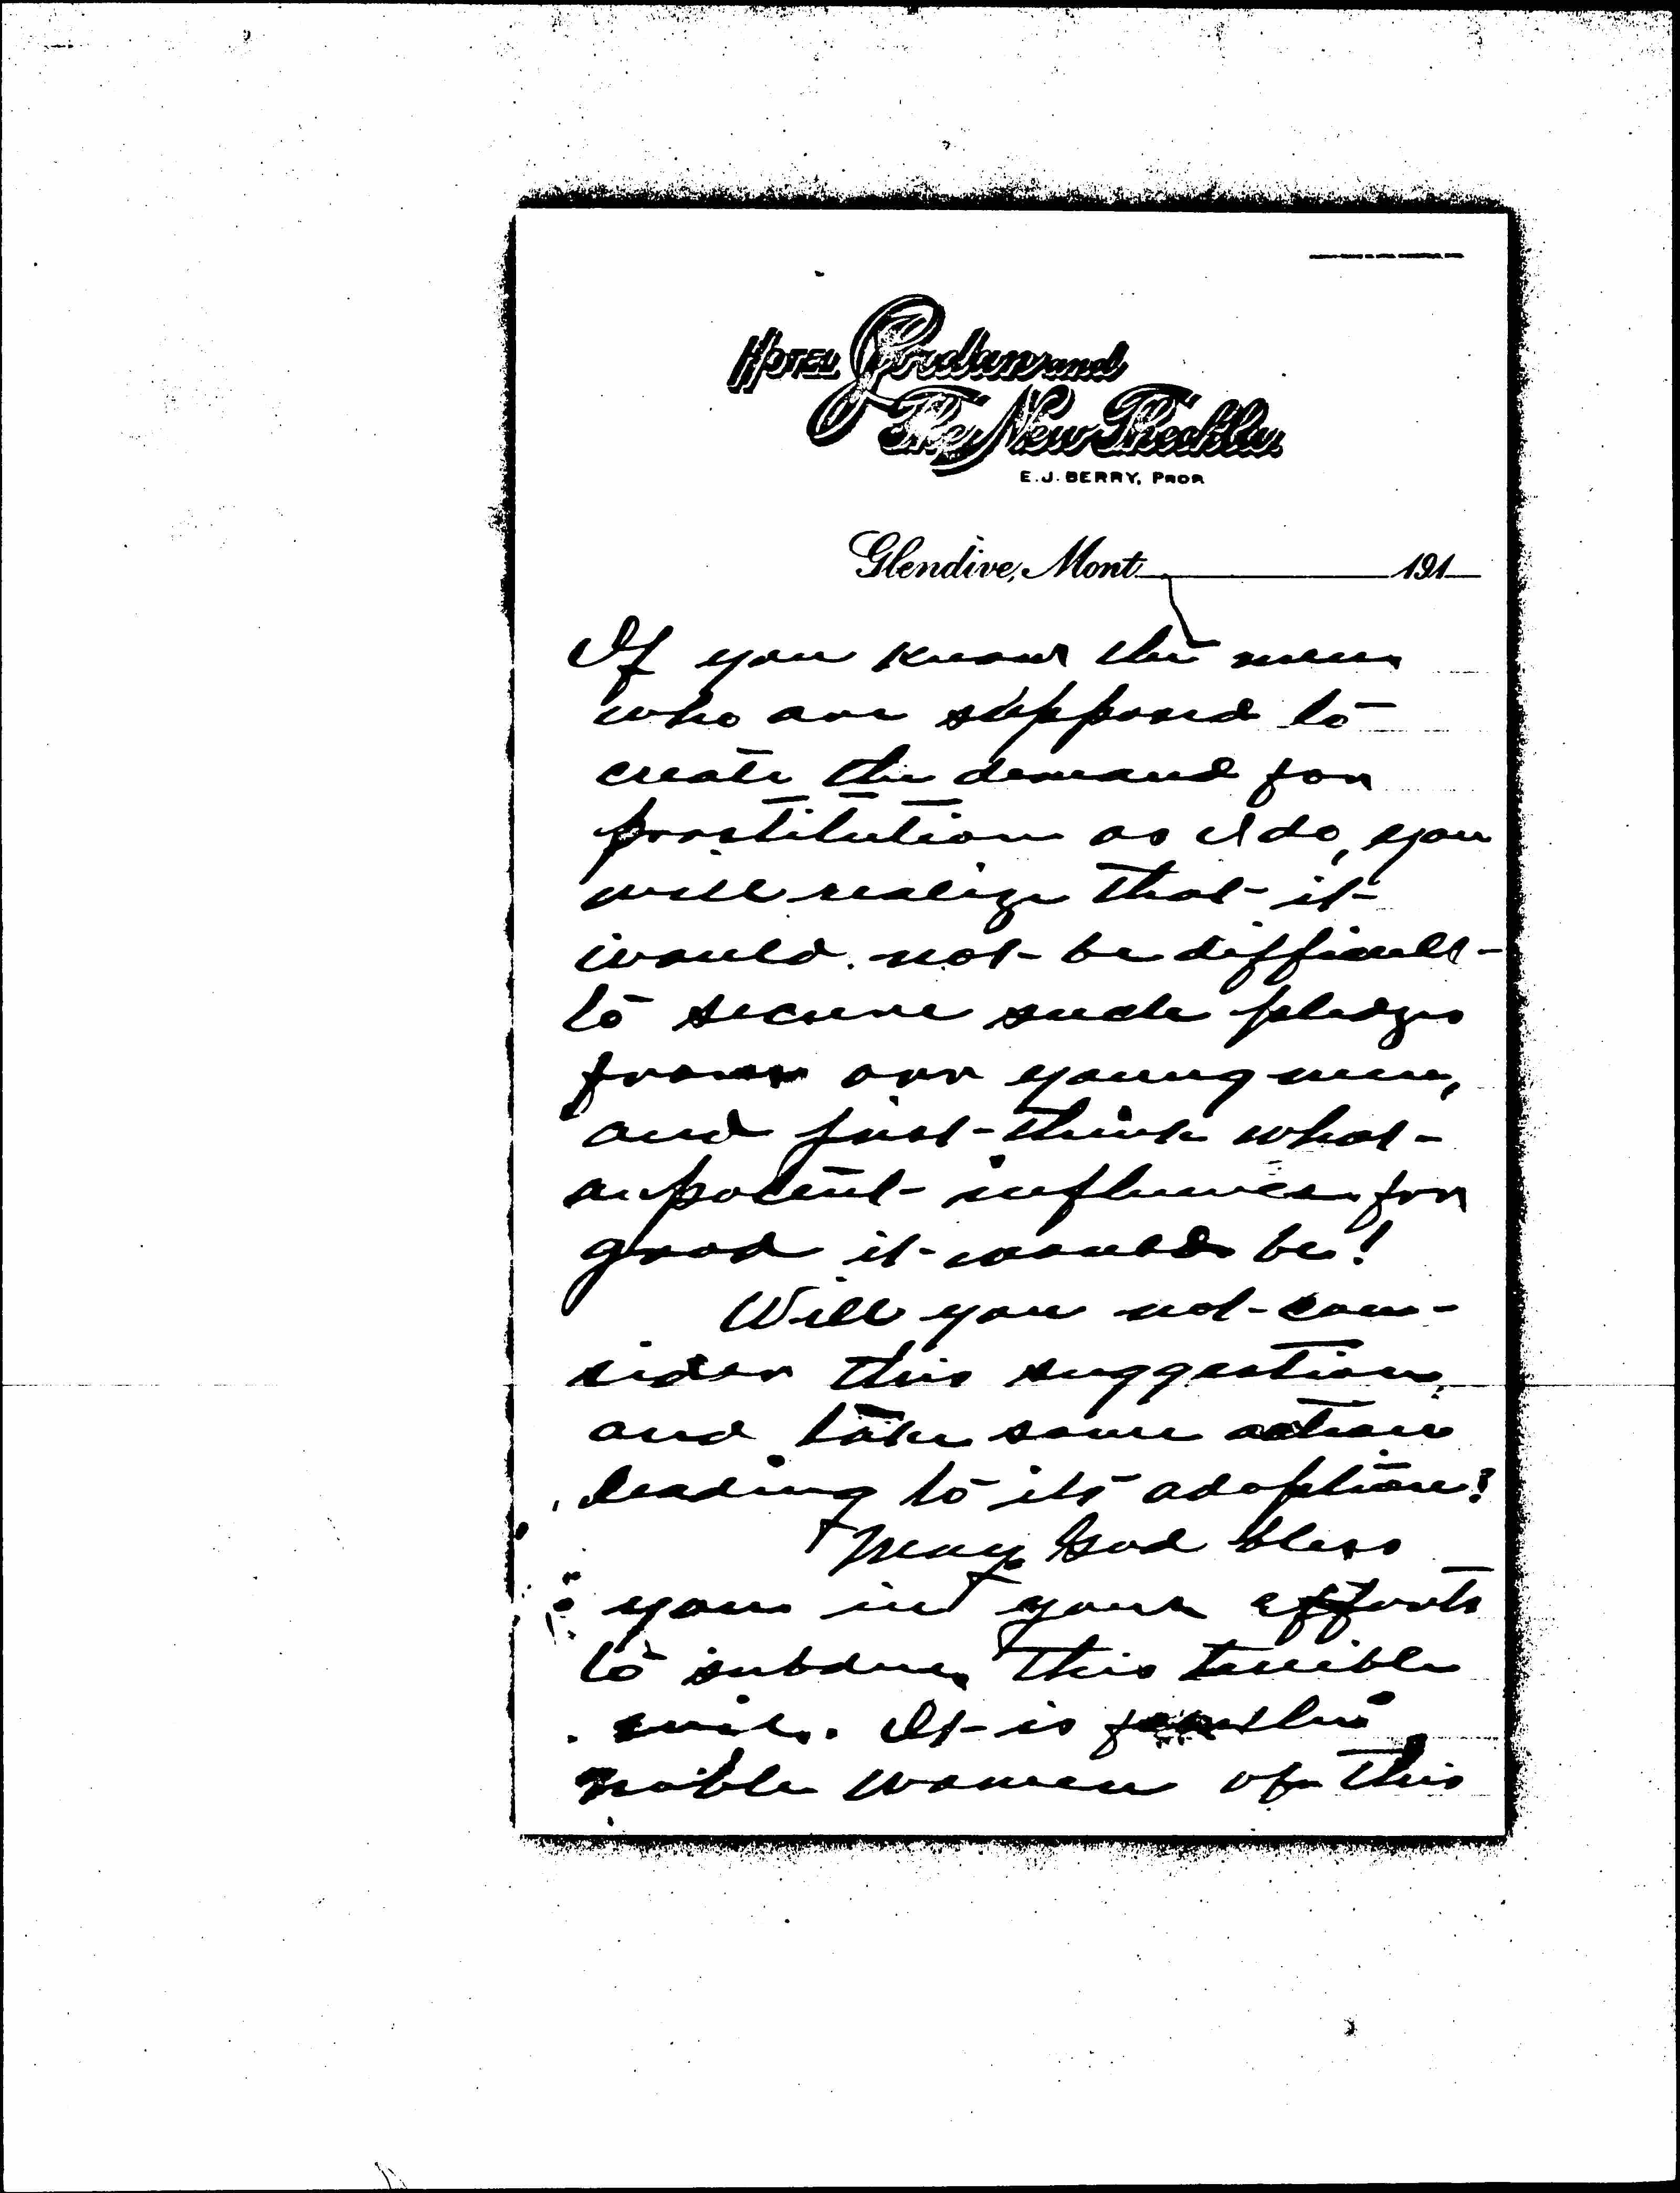 HOTEL Jordan and
The New Theckla
E.J. BERRY, PROP.
Glendive, Mont 191
If you know the men
who are supposed to
create the demand for
prostitution as I do, you
will realize that it
would not be difficult
to secure such pledges
from our young men,
and just think what
a potent influence for
good it would be!
Will you not con-
sider this suggestion,
and take some action
leading to its adoption?
May God bless
you in your efforts
to subdue this terrible
evil. It is for the
noble women of this